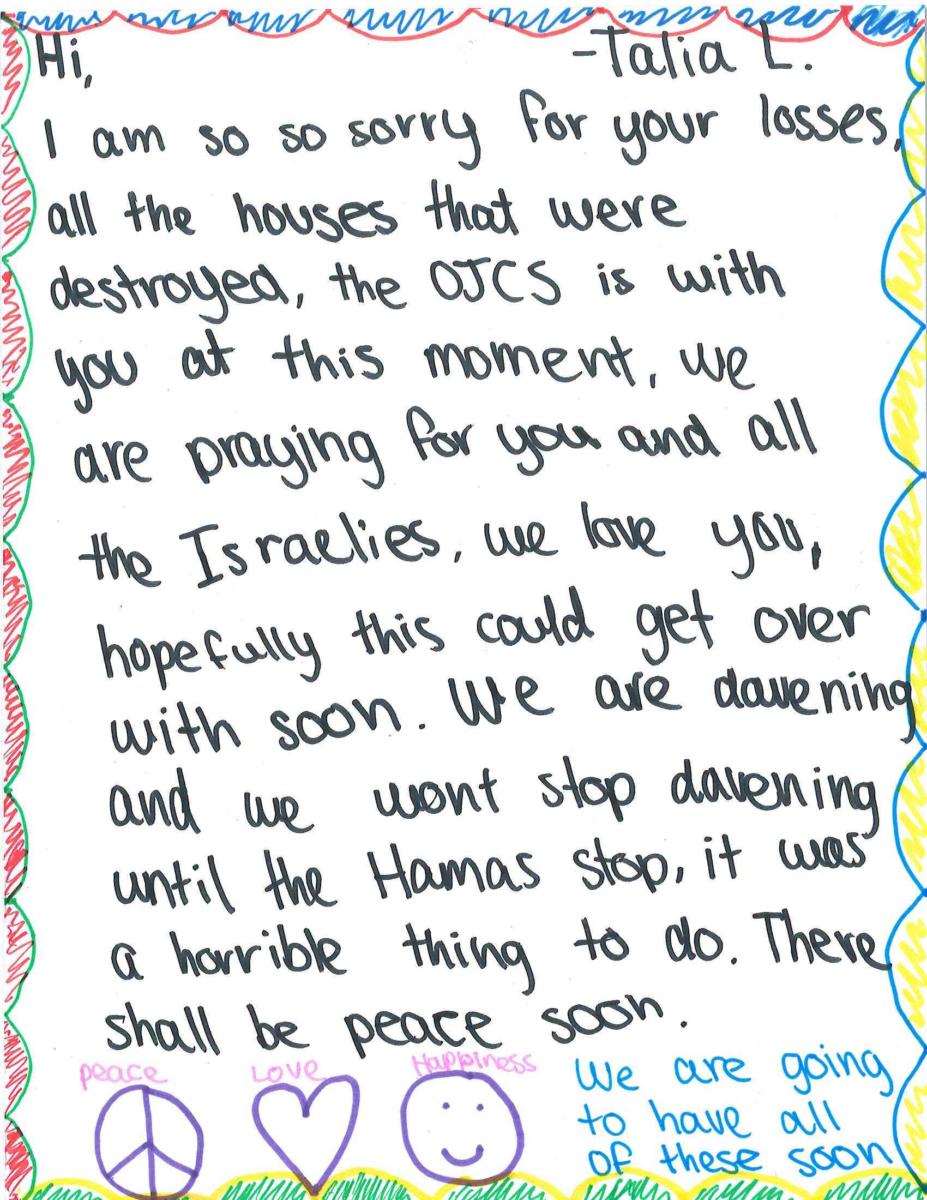 Hi, -Talia L.
I am so so sorry for your losses,
all the houses that were
destroyed, the OJCS is with
you at this moment, we
are praying for you and all
the Israelies, we love you,
hopefully this could get over
with soon. We are davening
and we wont stop davening
until the Hamas stop, it was
a horrible thing to do. There
shall be peace soon.
peace Love Happiness
We are going
to have all
of these soon